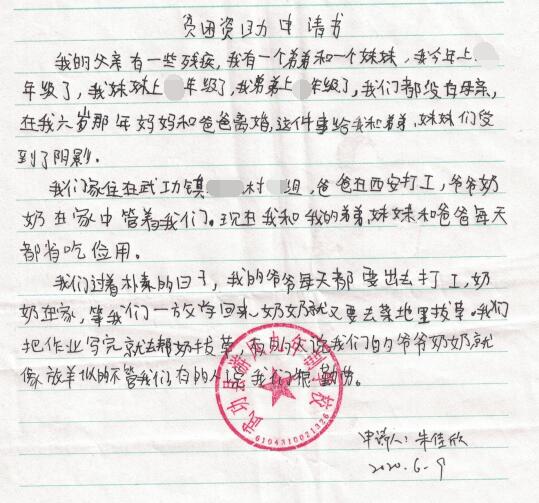 贫困资助申请书
我的父亲有一些残疾,我有一个弟弟和一个妹妹,我今年上
年级了,我妹妹上 年级了,我弟弟上 年级了,我们都没有母亲,
在我六岁那年妈妈和爸爸离婚,这件事给我和弟弟、妹妹们受
到了阴影。
我们家住在武功镇 村 组,爸爸在西安打工,爷爷奶
奶在家中管着我们。现在我和我的弟弟、妹妹和爸爸每天
都省吃俭用。
我们过着朴素的日子,我的爷爷每天都要出去打工,奶
奶在家,等我们一放学回来,奶奶就又要去菜地里拔草。我们
把作业写完就去帮奶拔草,有的人说我们的爷爷奶奶就
像放羊似的不管我们有的人说我们很勤劳。
武功县 学校
6104310021326
申请人:朱佳欣
2020.6.9